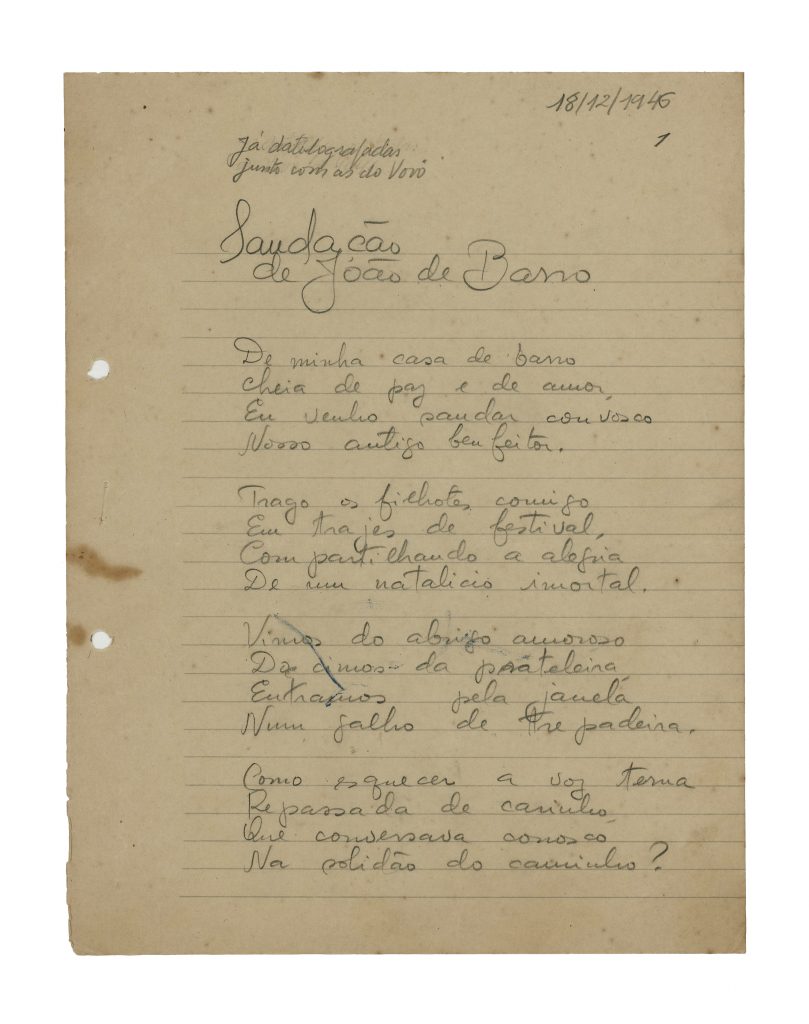 18/12/1946
1
Já datilografadas
junto com as do Vovô
Saudação
de João de Barro
De minha casa de barro
Cheia de paz e de amor,
Eu venho saudar convosco
Nosso antigo benfeitor.
Trago os filhotes comigo
Em trajes de festival,
Compartilhando a alegria
De um natalicio imortal.
Vimos do abrigo amoroso
De cimos da prateleira,
Entramos pela janela
Num galho de trepadeira.
Como esquecer a voz terna
Repassada de carinho,
Que conversava conosco
Na solidão do caminho?